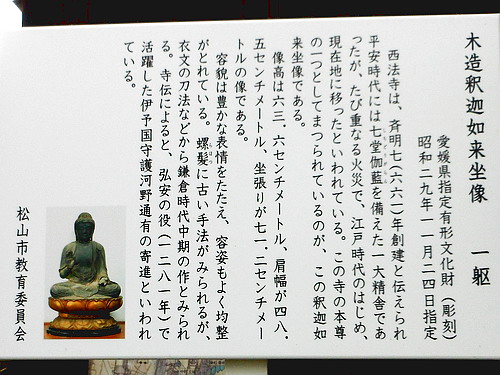 木造釈迦如来坐像　一躯
愛媛県指定有形文化財（彫刻）
昭和二九年一一月二四日指定
西法寺は、斉明七（六六一）年創建と伝えられ
平安時代には七堂伽藍を備えた一大精舎であ
ったが、たび重なる火災で、江戸時代のはじめ、
現在地に移ったといわれている。この寺の本尊
の一つとしてまつられているのが、この釈迦如
来坐像である。
像高は六三．六センチメートル、肩幅が四八．
五センチメートル、坐張りが七一．二センチメー
トルの像である。
容貌は豊かな表情をたたえ、容姿もよく均整
がとれている。螺髪に古い手法がみられるが、
衣文の刀法などから鎌倉時代中期の作とみられ
る。寺伝によると、弘安の役（一二八一年）で
活躍した伊予国守護河野通有の寄進といわれ
ている。
松山市教育委員会